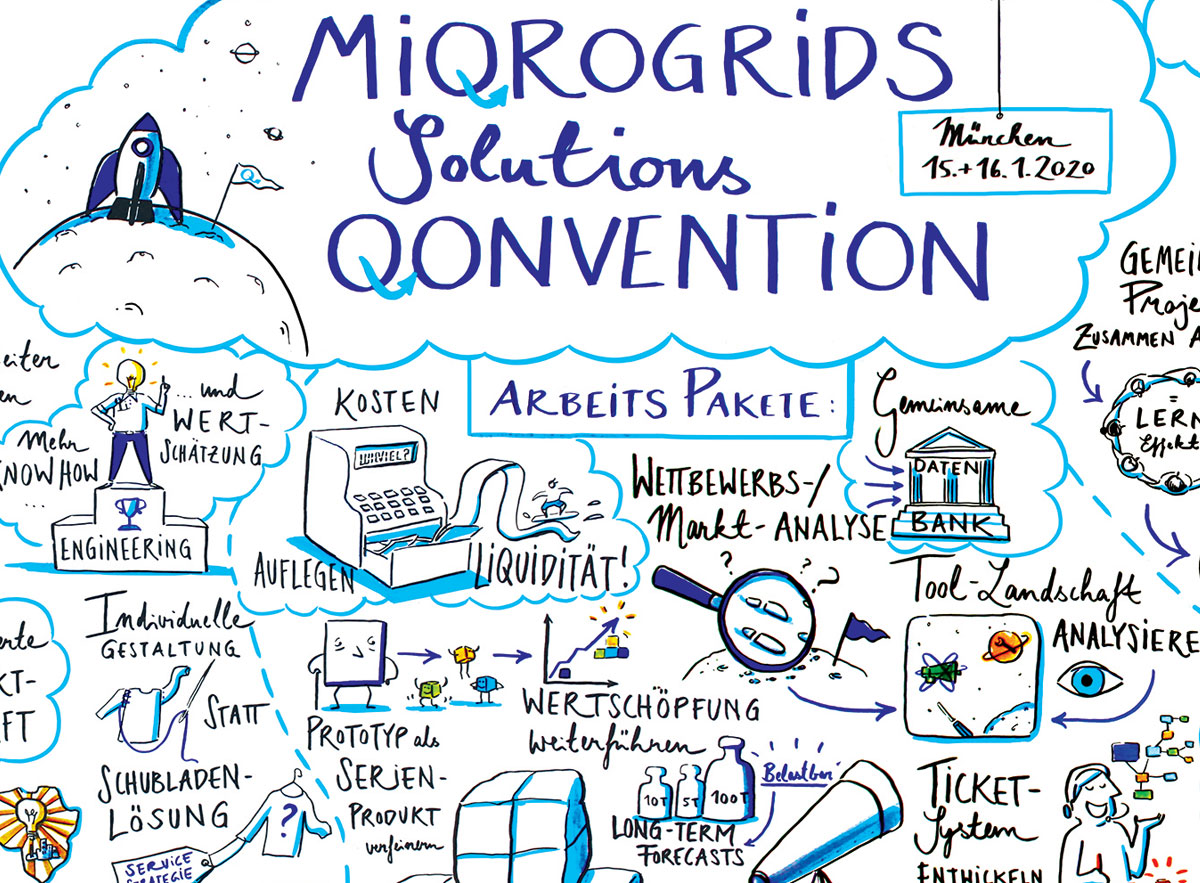 MiQROGRiDS
Solutions
QONVENTiON
München
15.+16.1.2020
Q
GEMEIN
Proje
ZUSAMMEN A
=
LERN
Effekt
eiter
en
... und
WERT-
SCHÄTZUNG
Mehr
KNOWHOW
...
ENGINEERING
KOSTEN
WIEVIEL?
AUFLEGEN
LIQUIDITÄT!
ARBEITS PAKETE:
Gemeinsame
DATEN
BANK
WETTBEWERBS-/
Markt-ANALYSE
? ? ?
Tool-Landschaft
ANALYSIERE
Individuelle
GESTALTUNG
STATT
SCHUBLADEN-
LÖSUNG
?
SERVICE
STRATEGIE
erte
KT-
FT
PROTOTYP als
SERIEN-
PRODUKT
verfeinern
WERTSCHÖPFUNG
weiterführen
10T 5T 100T
Belastbar
LONG-TERM
FORECASTS
TICKET-
System
ENTWICKELN